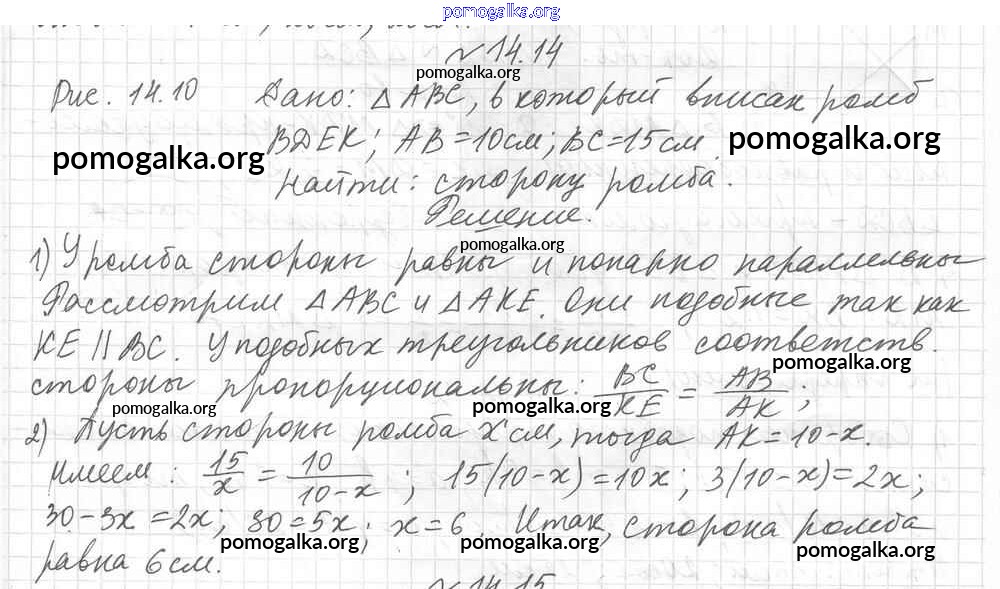 pomogalka.org
№14.14
pomogalka.org
Рис. 14.10 Дано: △ABC, в который вписан ромб
BДEK; AB=10см; BC=15см.
pomogalka.org pomogalka.org
Найти: сторону ромба.
Решение.
pomogalka.org
1) У ромба стороны равны и попарно параллельны
Рассмотрим △ABC и △AKE. Они подобные так как
KE || BC. У подобных треугольников соответств.
pomogalka.org
стороны пропорциональны: BC/KE = AB/AK;
pomogalka.org pomogalka.org
2) Пусть стороны ромба x см, тогда AK=10-x.
Имеем: 15/x = 10/(10-x); 15(10-x)=10x; 3(10-x)=2x;
30-3x=2x; 30=5x; x=6. Итак, сторона ромба
pomogalka.org pomogalka.org pomogalka.org
равна 6см.
№14.15